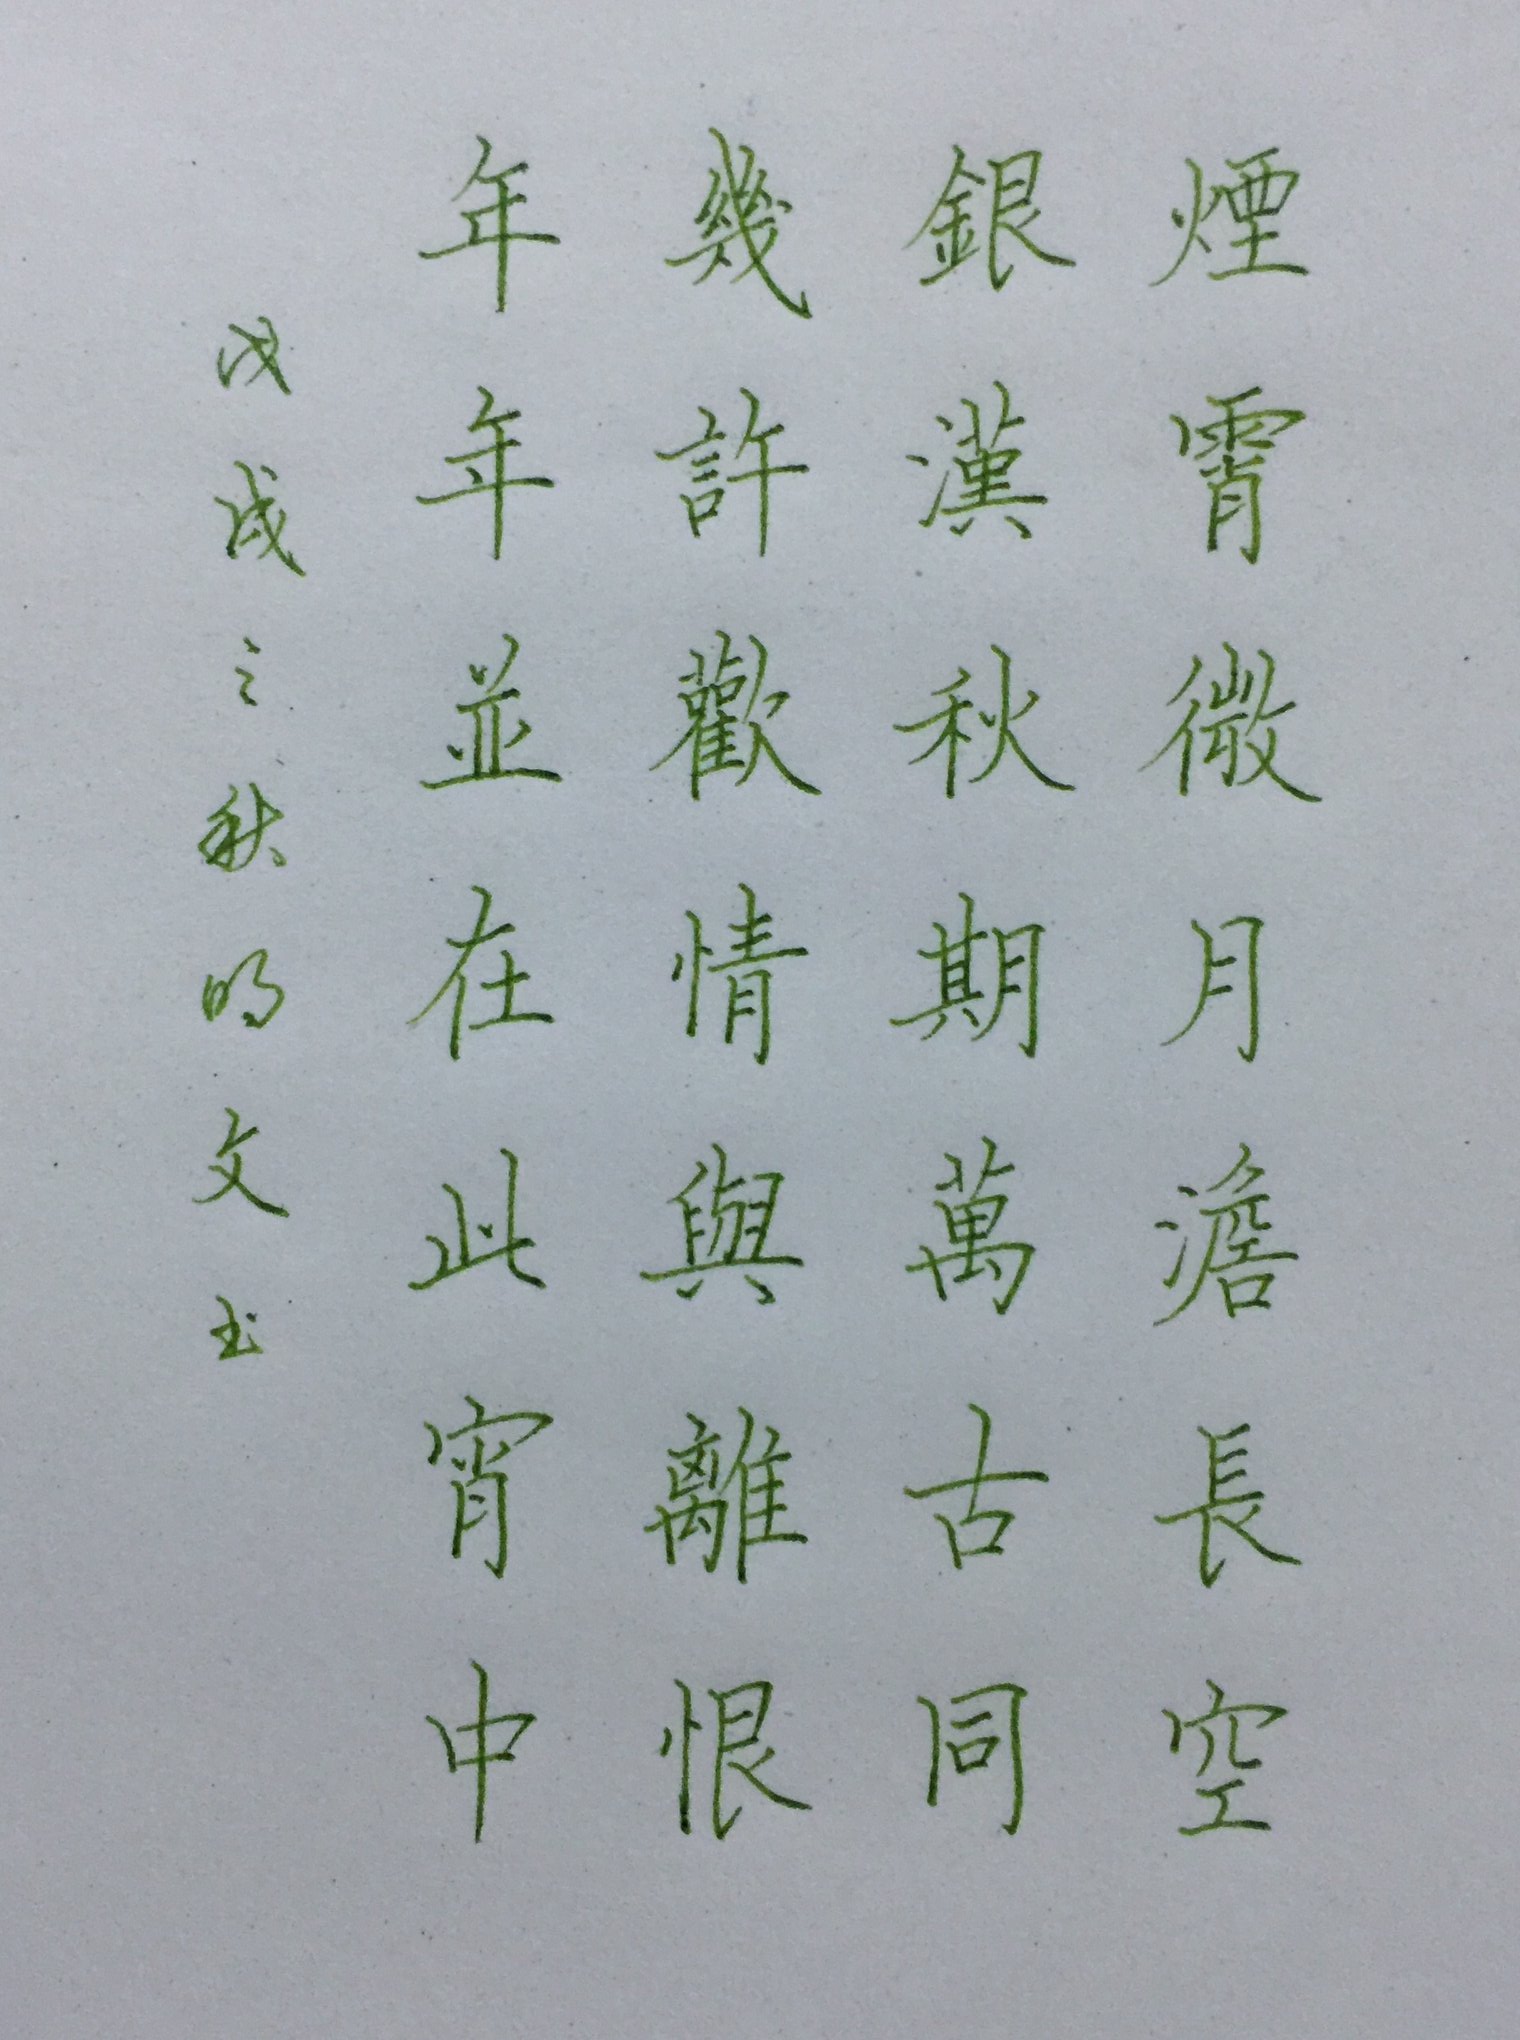 煙霄微月澹長空
銀漢秋期萬古同
幾許歡情與離恨
年年並在此宵中
戊戌之秋明文书